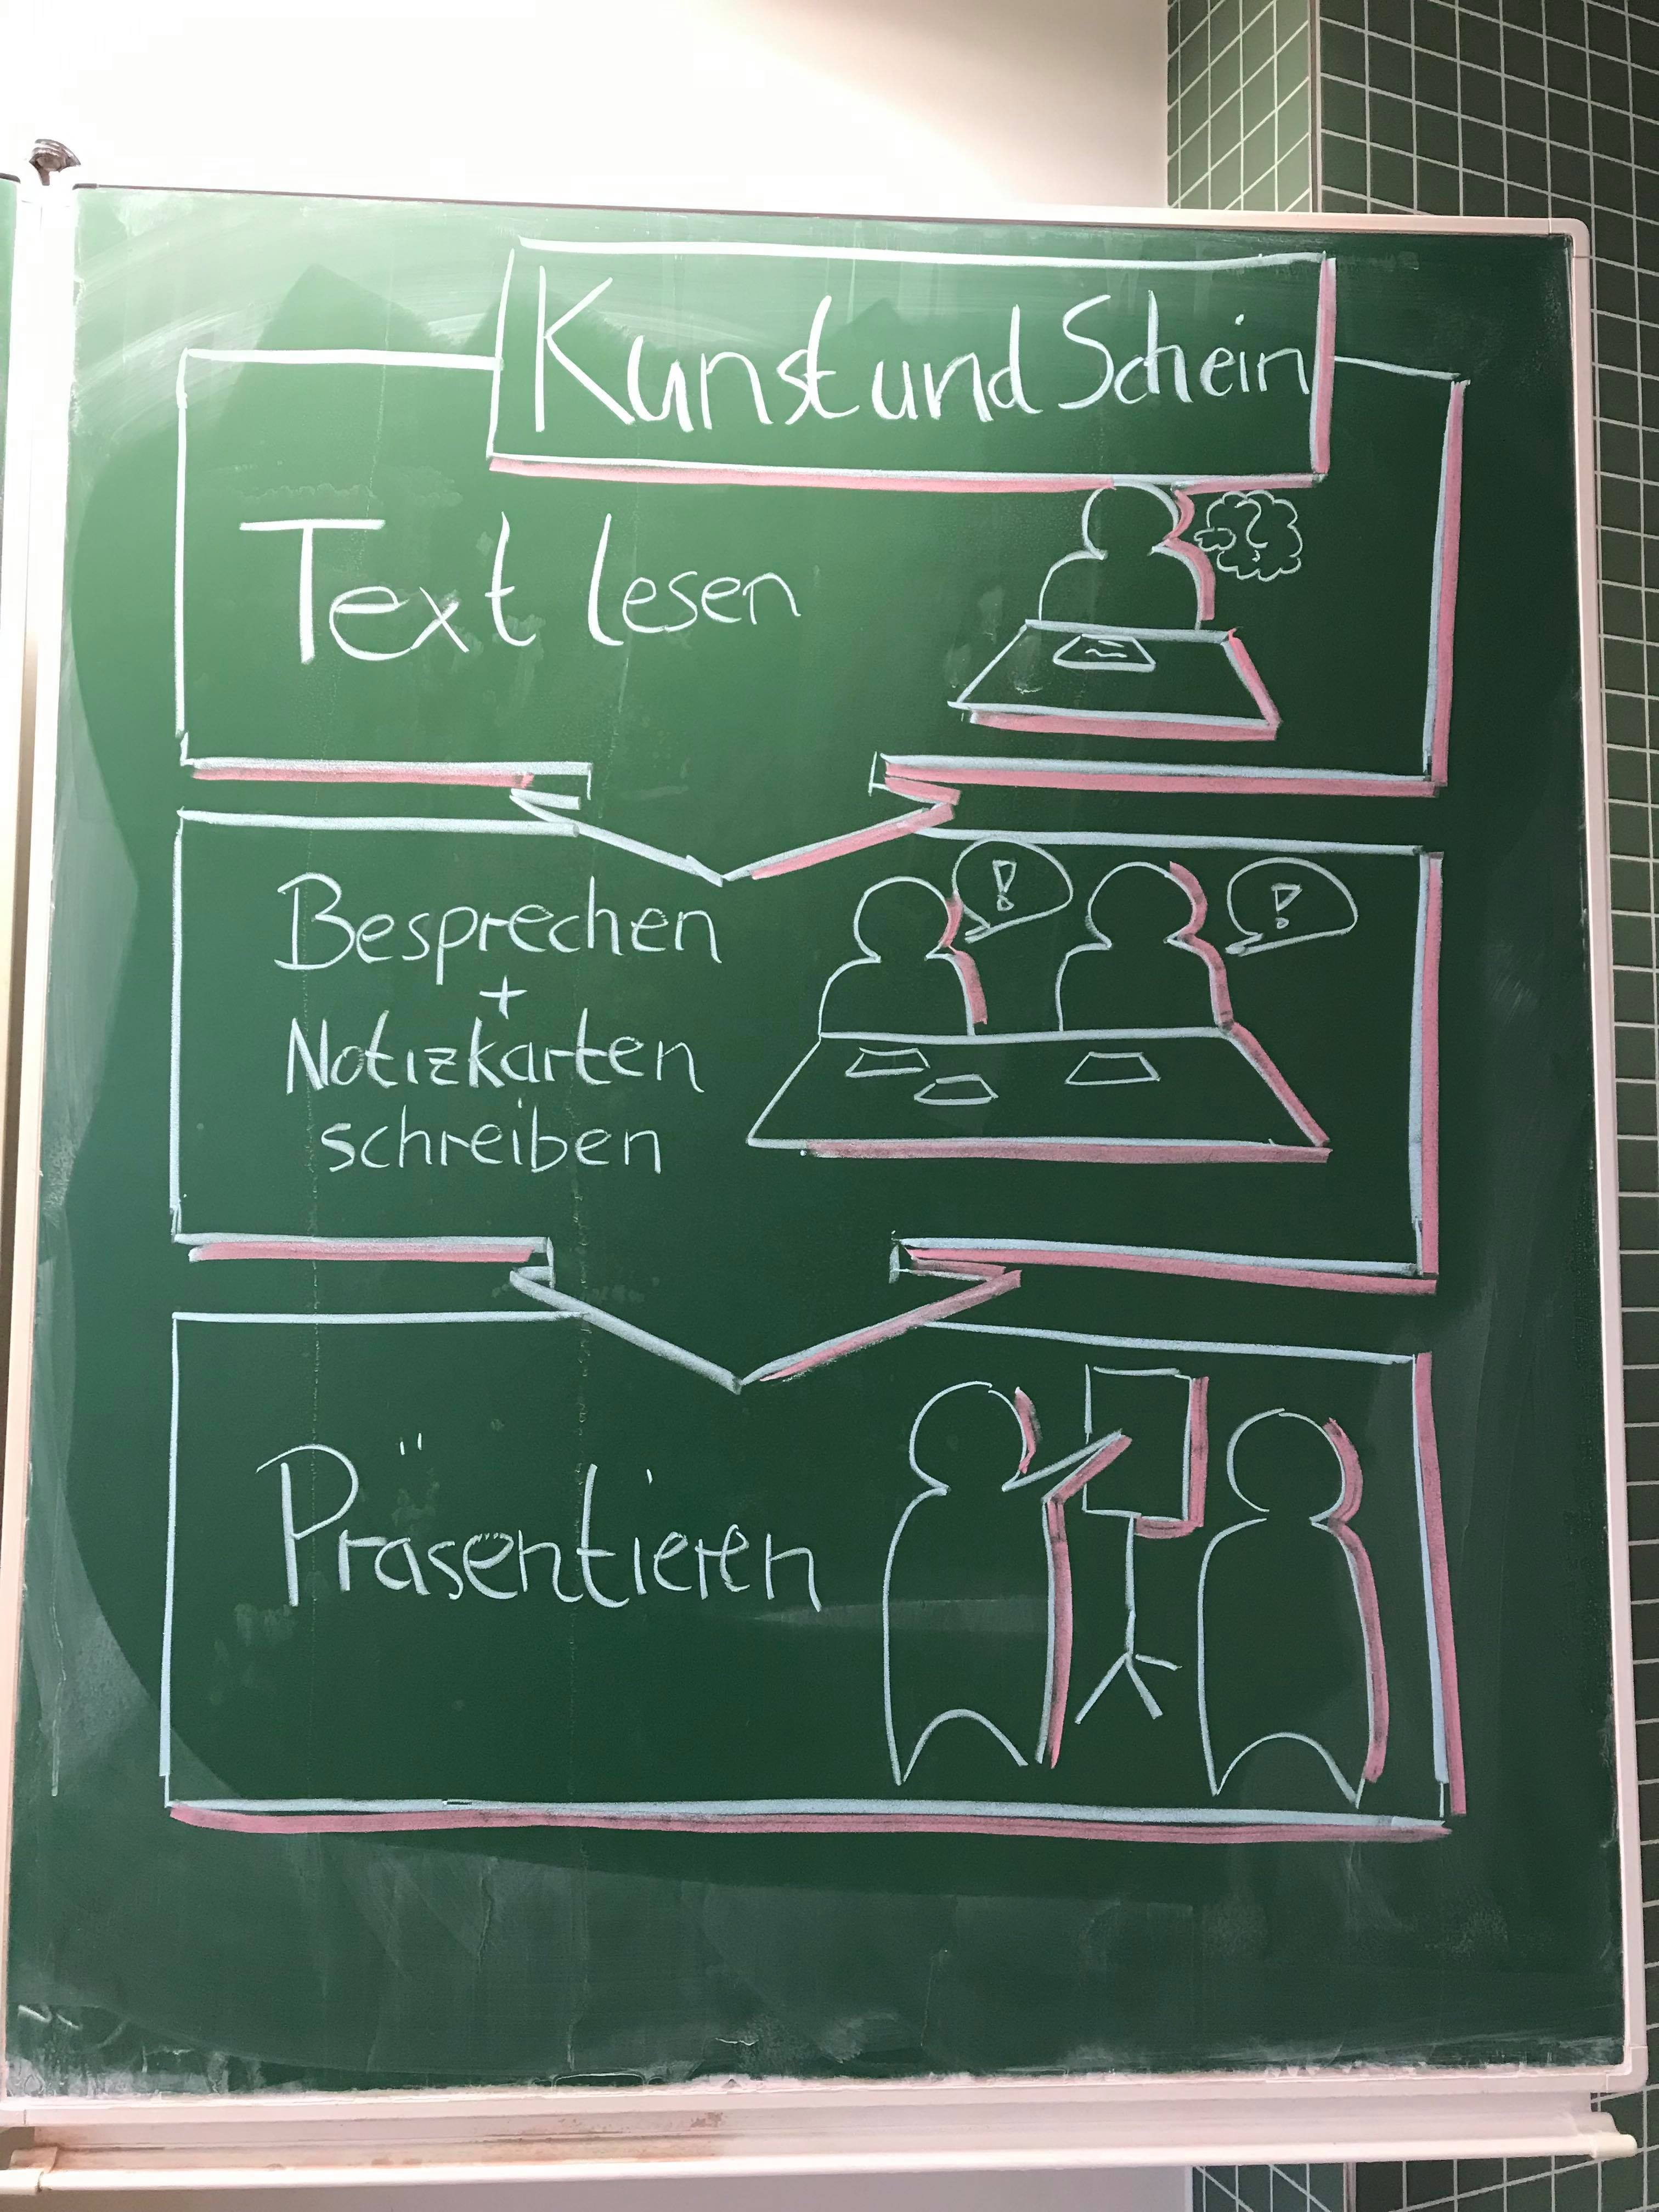 Kunst und Schein
Text lesen
?
! !
Besprechen
+
Notizkarten
schreiben
Präsentieren